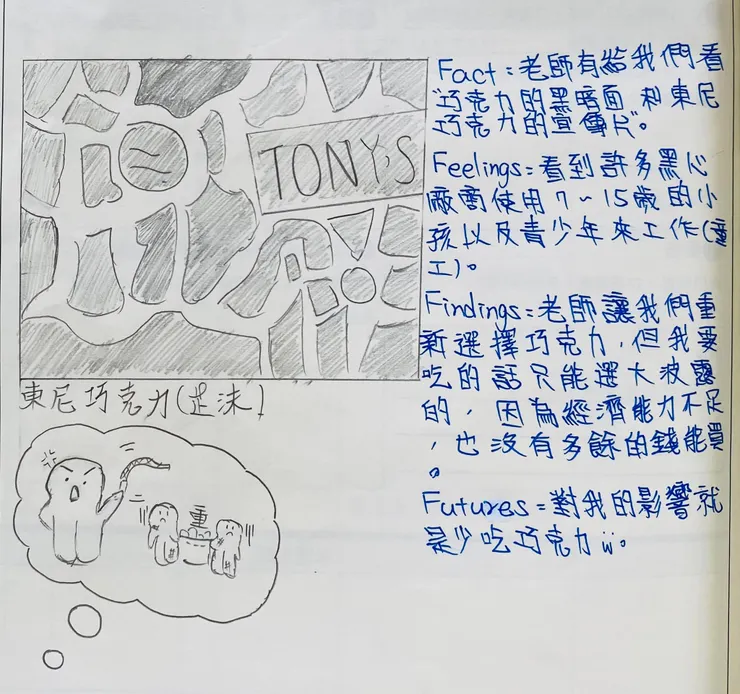 TONY'S
東尼巧克力
重
Fact：老師有給我們看
"巧克力的黑暗面 和東尼
巧克力的宣傳片"。
Feelings：看到許多黑心
廠商使用7～15歲的小
孩以及青少年來工作(童
工)。
Findings：老師讓我們重
新選擇巧克力，但我要
吃的話只能選大波露
的，因為經濟能力不足
，也沒有多餘的錢能買
。
Futures：對我的影響就
是少吃巧克力ü。